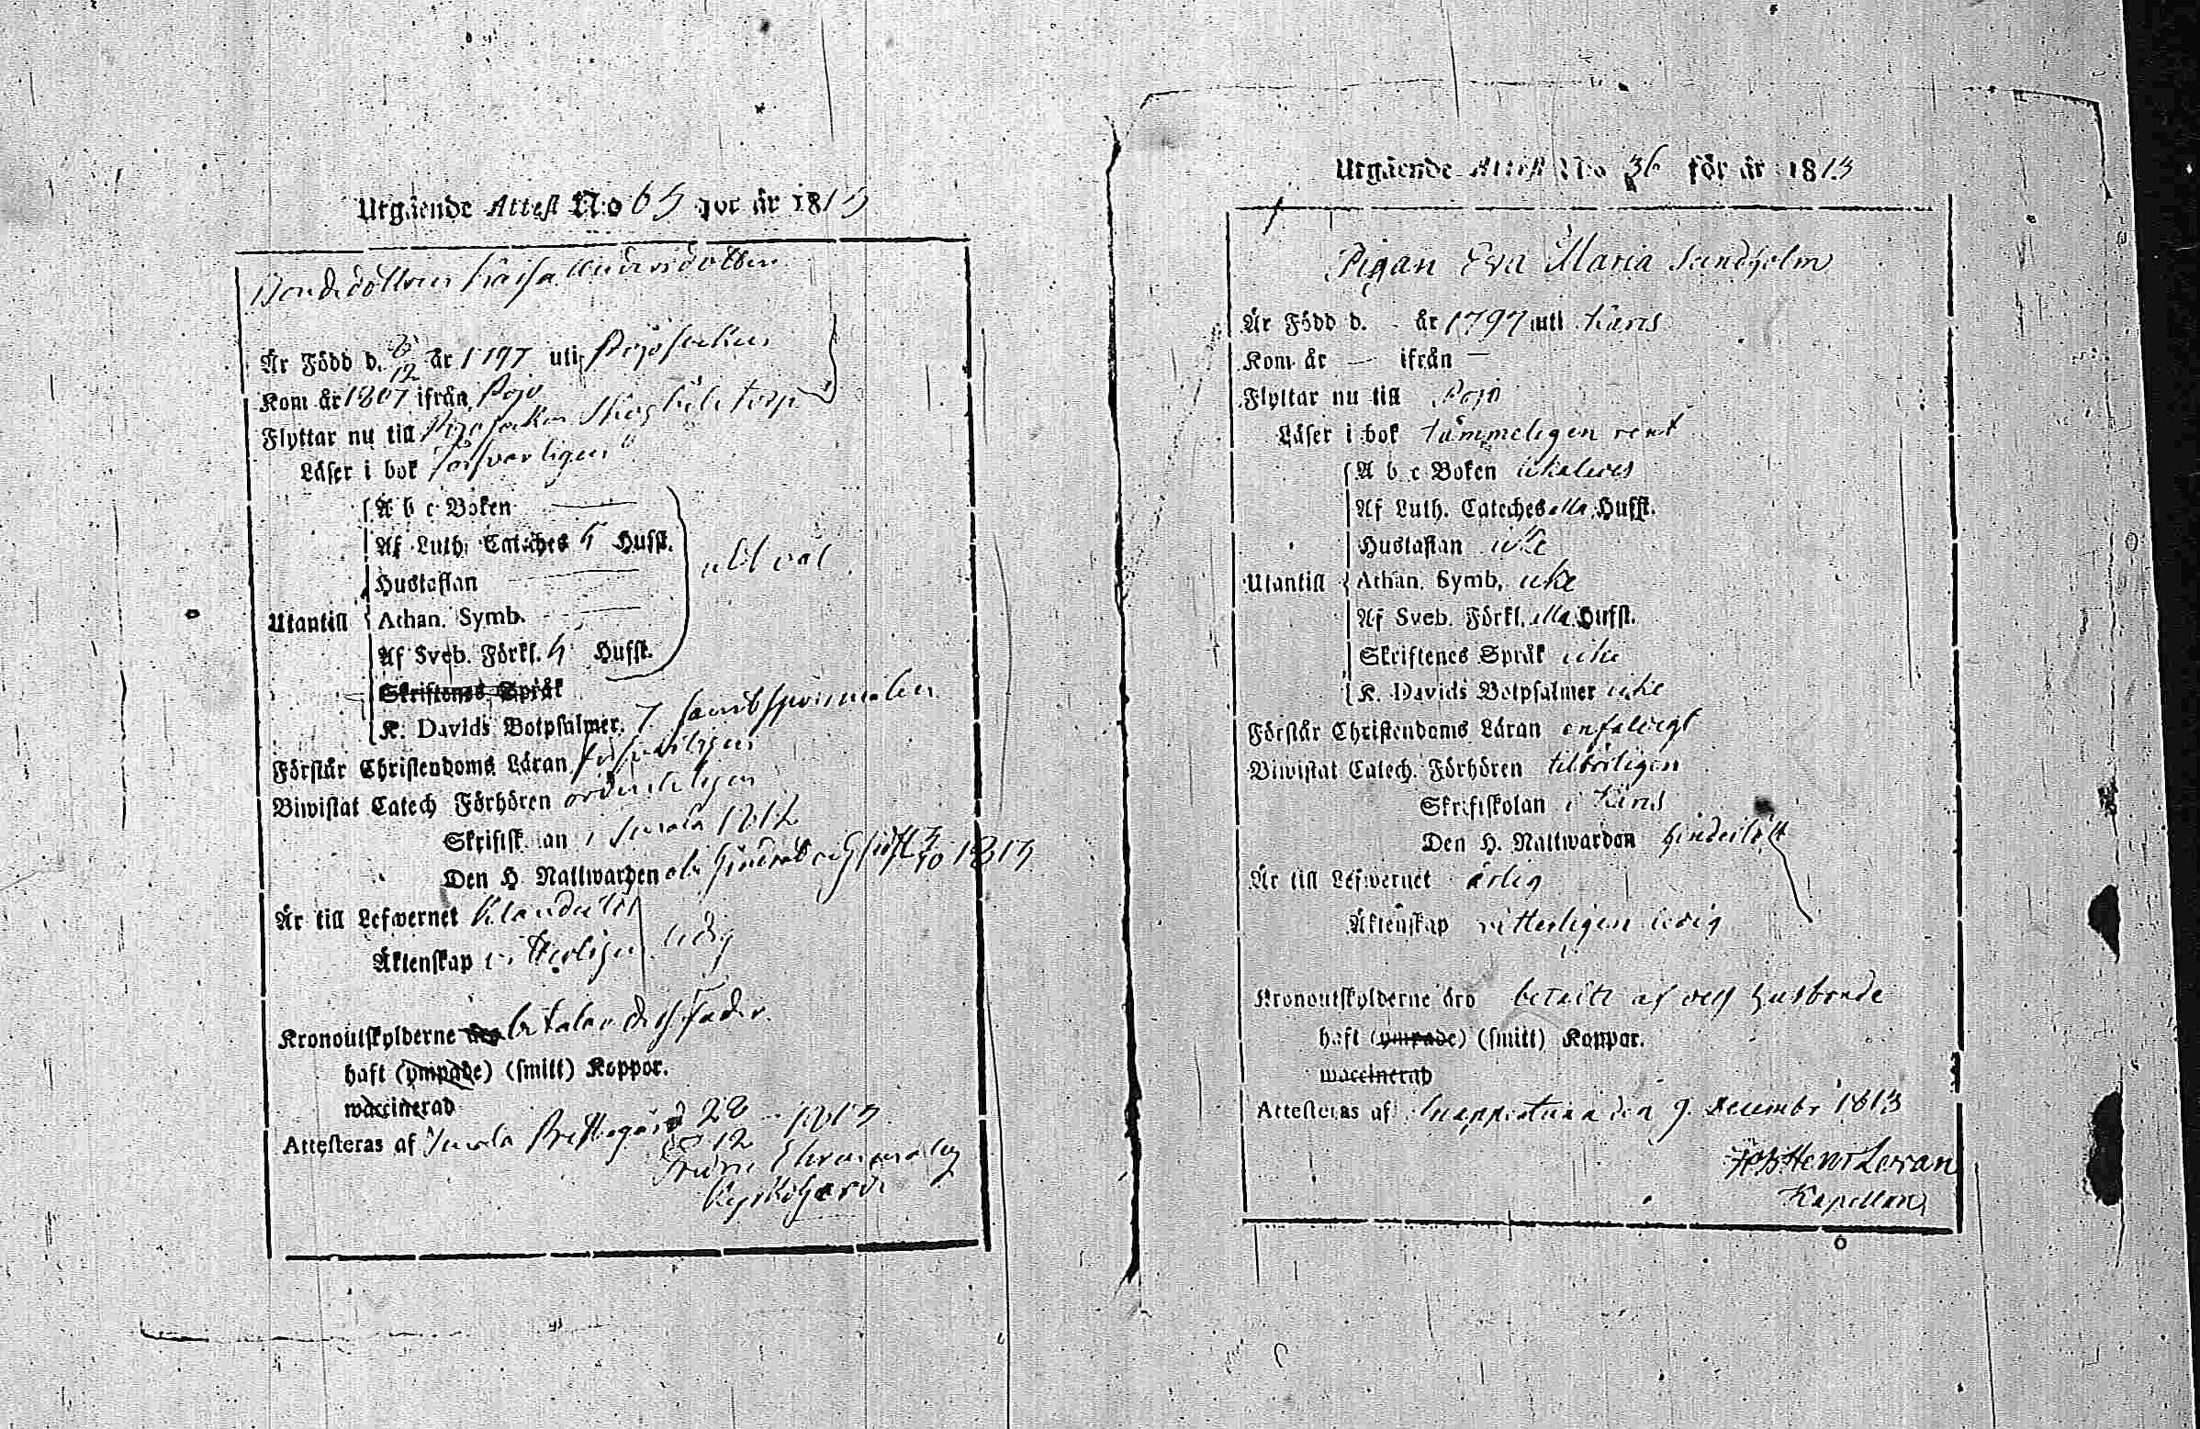 Utgående Attest N:o 65 för år 1813
Bondedottren Kaisa Andersdotter
Är Född d. 6/12 år 1797 uti Pojo socken
Kom år 1807 ifrån Pojo
Flyttar nu till Pojo socken Skogböle torp
Läser i bok försvarligen
A b c Boken
Af Luth. Catches 5 Hufst.
Hustaflan
utt väl
Utantill Athan. Symb.
Af Sveb. Förkl. 5 Hufst.
Skriftenes Språk
K. Davids Botpsalmer. 7 samt spörsmålen
Förstår Christendoms Läran försvarligen
Biwistat Catech Förhören ordenteligen
Skriftsk an i 1812
Den H. Nattwarden 1813
Är till Lefwernet
Äktenskap witterligen ledig
Kronoutskylderne äro betalar dess Fader.
haft (ympade) (smitt) Koppor.
waccinerad
Attesteras af Prestegård 28/12 1813
Kyrkoherde
Utgående Attest N:o 36 för år 1813
Pigan Eva Maria Sundholm
Är Född d. - år 1797 uti Karis
Kom år — ifrån —
Flyttar nu till Pojo
Läser i bok tämmeligen rent
A b c Boken
Af Luth. Cateches alla Hufst.
Hustaflan icke
Utantill Athan. Symb. icke
Af Sveb. Förkl. alla Hufst.
Skriftenes Språk icke
K. Davids Botpsalmer icke
Förstår Christendoms Läran enfaldigt
Biwistat Catech. Förhören tilbörligen
Skriftskolan i Karis
Den H. Nattwarden
Är till Lefwernet ärlig
Äktenskap witterligen ledig
Kronoutskylderne äro betalte af dess husbonde
haft (ympade) (smitt) Koppor.
waccinerad
Attesteras af Snappertuna den 9. Decembr 1813
Kapellan